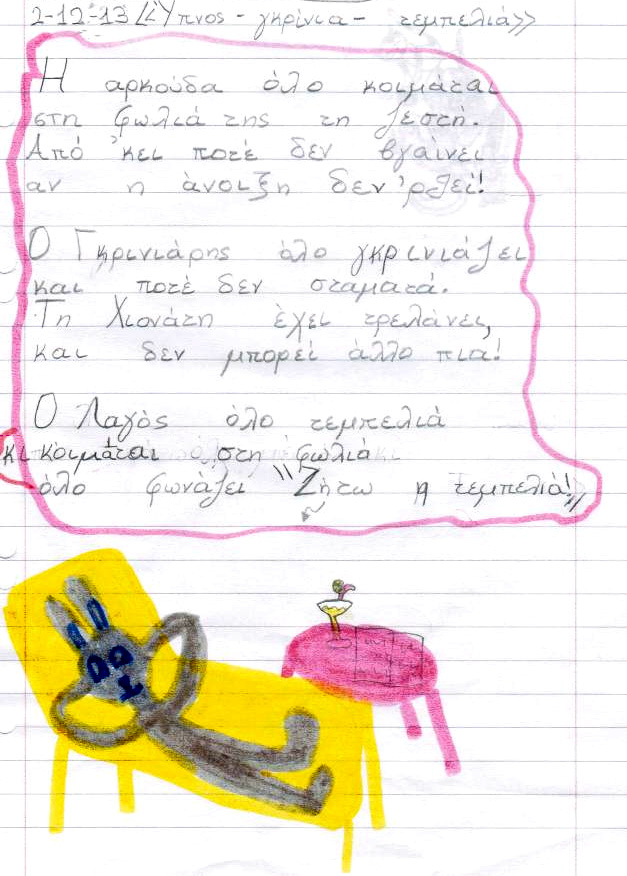 2-12-13 «Ύπνος - γκρίνια - τεμπελιά»
Η αρκούδα όλο κοιμάται
στη φωλιά της τη ζεστή.
Από 'κει ποτέ δεν βγαίνει
αν η άνοιξη δεν 'ρθεί!
Ο Γκρινιάρης όλο γκρινιάζει
και ποτέ δεν σταματά.
Τη Χιονάτη έχει τρελάνει,
και δεν μπορεί άλλο πια!
Ο Λαγός όλο τεμπελιά
κι κοιμάται στη φωλιά
όλο φωνάζει "Ζήτω η τεμπελιά!"